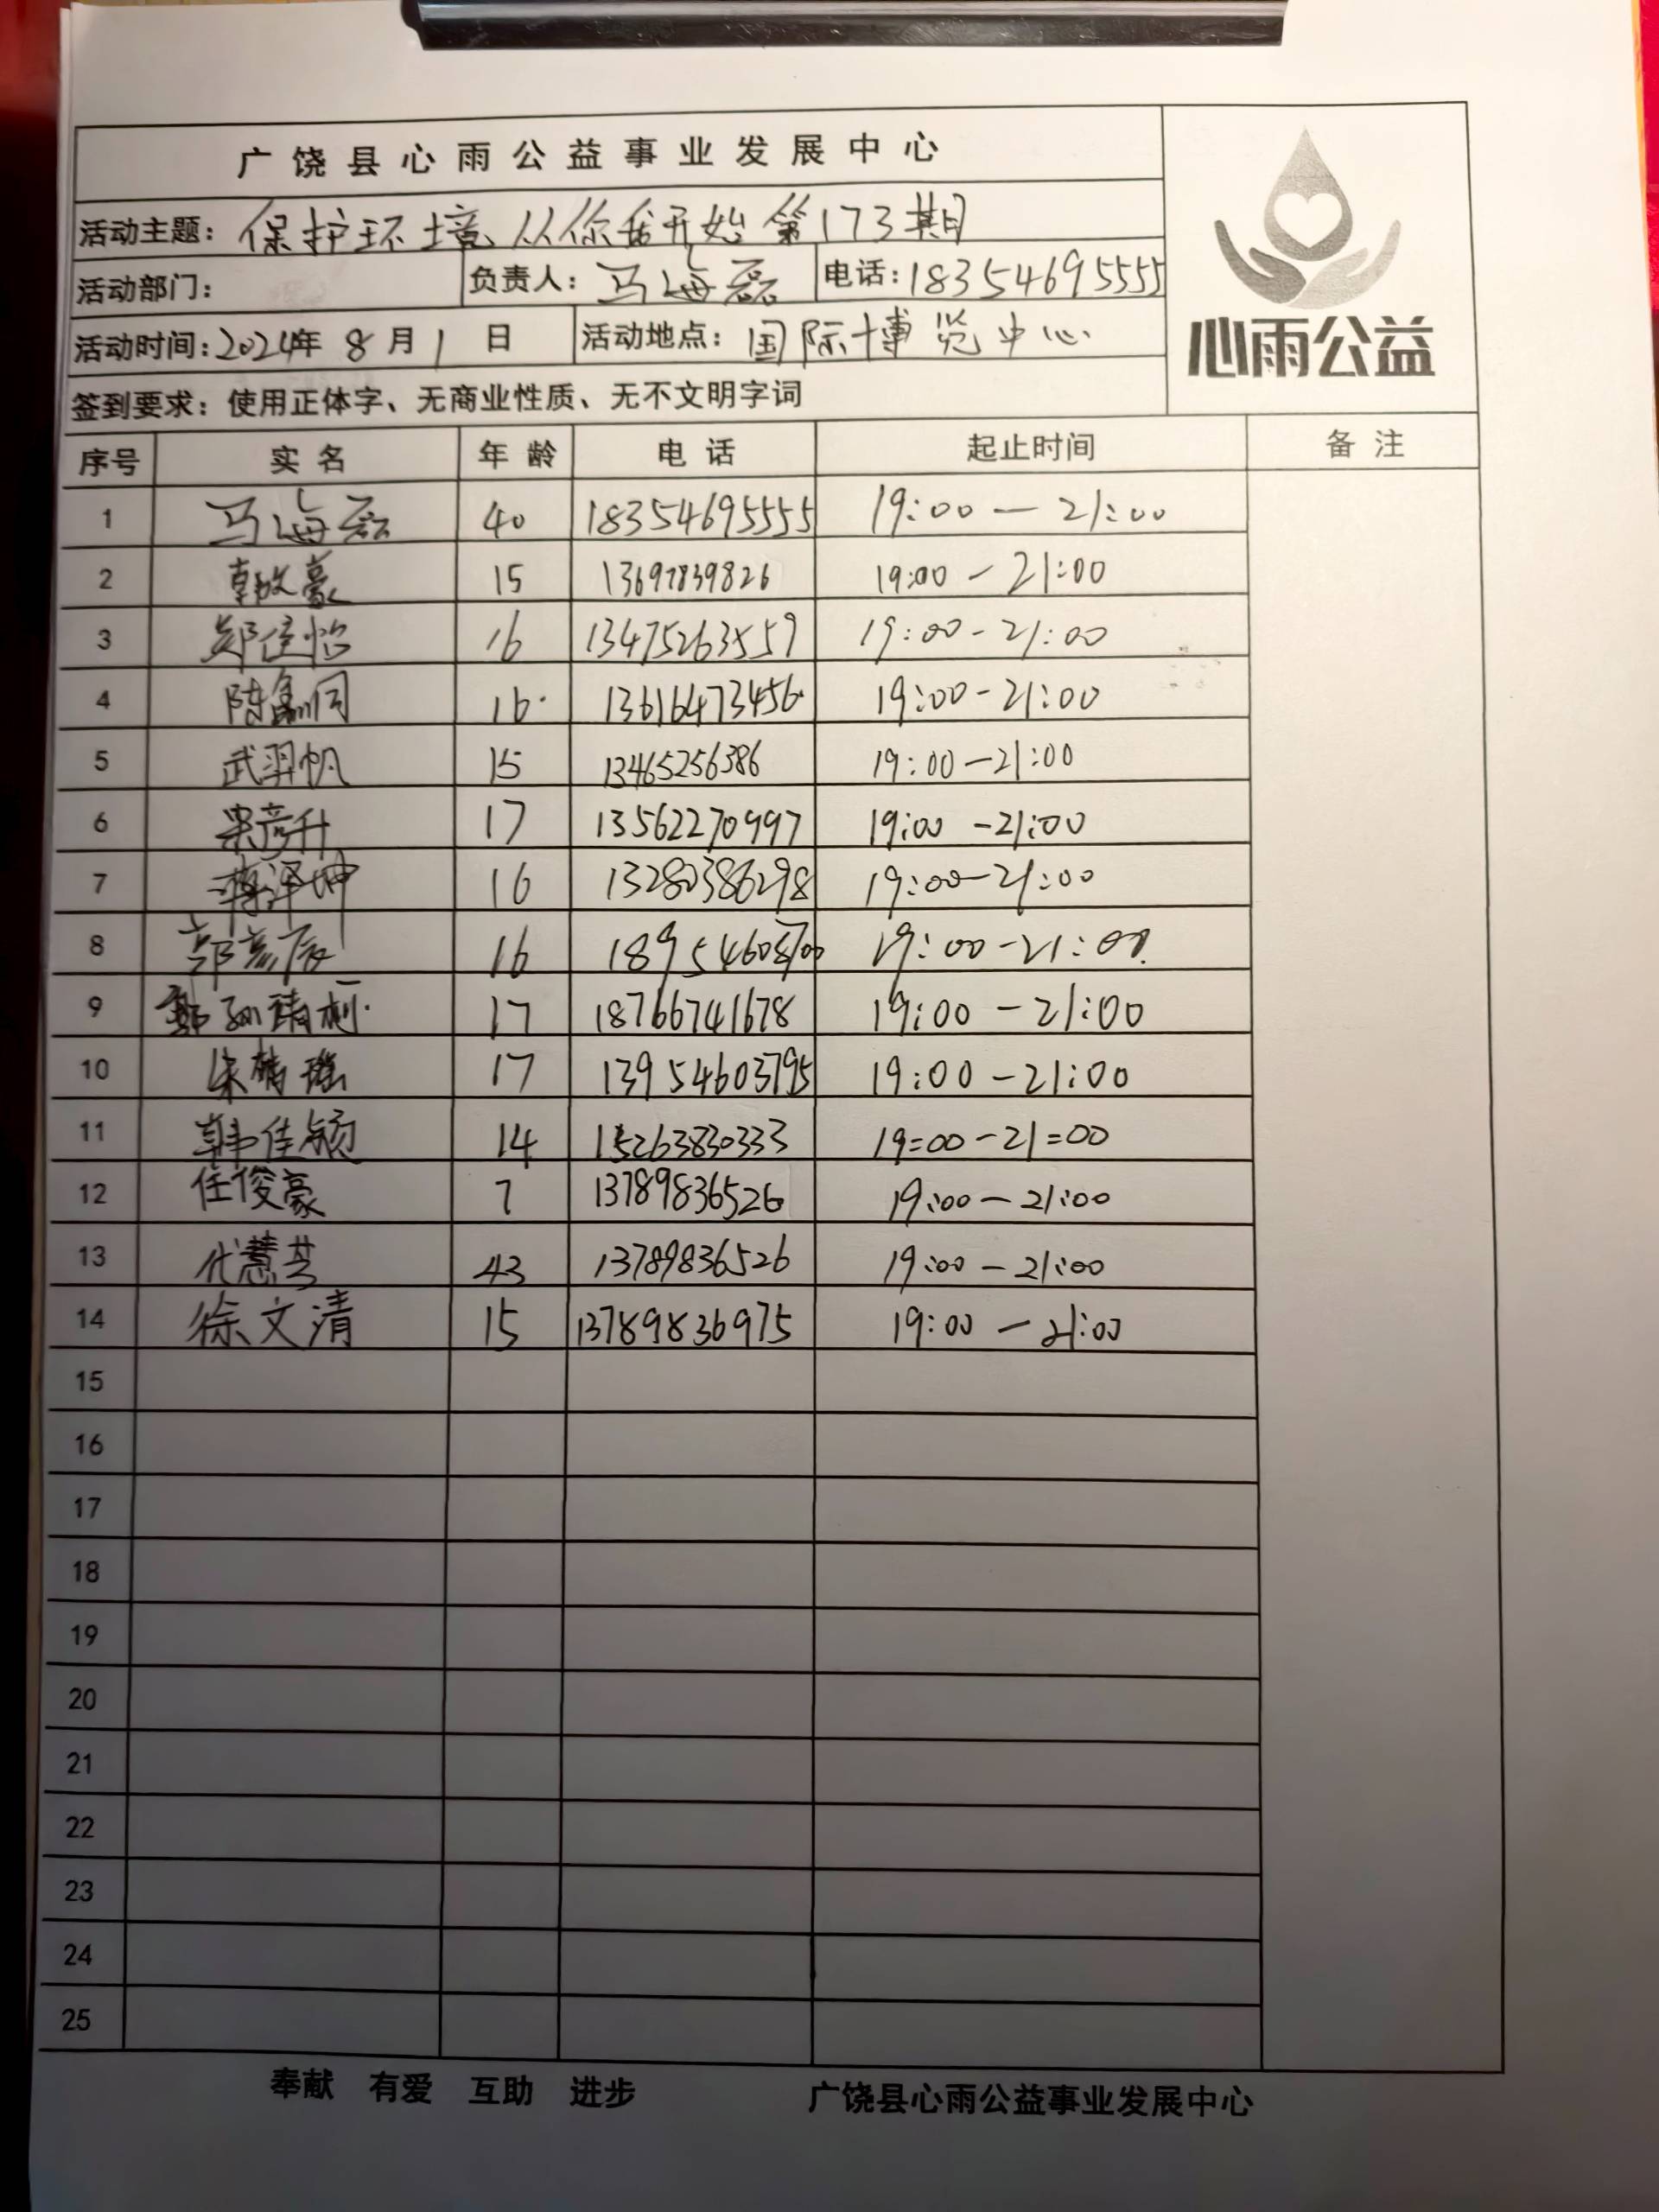 广饶县心雨公益事业发展中心
活动主题：保护环境从你我开始第173期
活动部门： 负责人：马海磊 电话：18354695555
活动时间：2024年8月1日 活动地点：国际博览中心
心雨公益
签到要求：使用正体字、无商业性质、无不文明字词
序号 实名 年龄 电话 起止时间 备注
1 马海磊 40 18354695555 19:00—21:00
2 15 13697839826 19:00—21:00
3 郑佳怡 16 13475263559 19:00-21:00
4 16 13616473456 19:00-21:00
5 武羿帆 15 13465256386 19:00—21:00
6 梁彦升 17 13562270997 19:00—21:00
7 16 13280386298 19:00—21:00
8 16 19:00-21:00
9 17 18766741678 19:00—21:00
10 17 13954603795 19:00—21:00
11 韩佳颖 14 15263830333 19=00-21=00
12 任俊豪 7 13789836526 19:00—21:00
13 代慧芳 43 13789836526 19:00—21:00
14 徐文清 15 13789836975 19:00—21:00
15
16
17
18
19
20
21
22
23
24
25
奉献 有爱 互助 进步 广饶县心雨公益事业发展中心